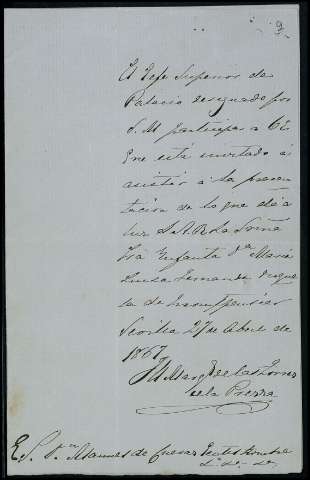 El Jefe Superior de
Palacio designado por
S. M. participa a V. E.
que está invitado á
asistir á la presen
tacion de lo que dé a
luz S. A. R. la Serma
Sra Infanta Da Maria
Luisa Fernanda Duque
sa de Montpensier
Sevilla 27 de Abril de
1867
El Marqs de las Torres
de la Presa
E. S. Dn de Cueva